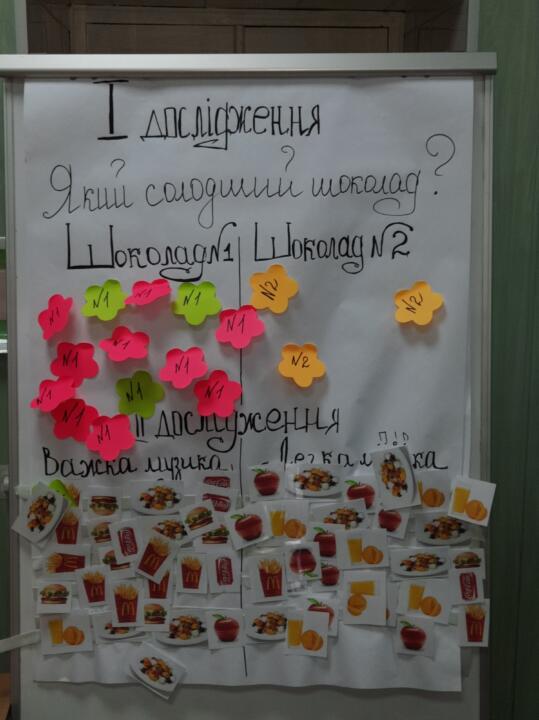 I дослідження
Який солодший шоколад?
? ?
Шоколад №1 Шоколад №2
№1
№1
№1
№1
№1
№1
№1
№1
№1
№1
№1
№1
№1
№2
№2
№2
II дослідження
Важка музика Легка